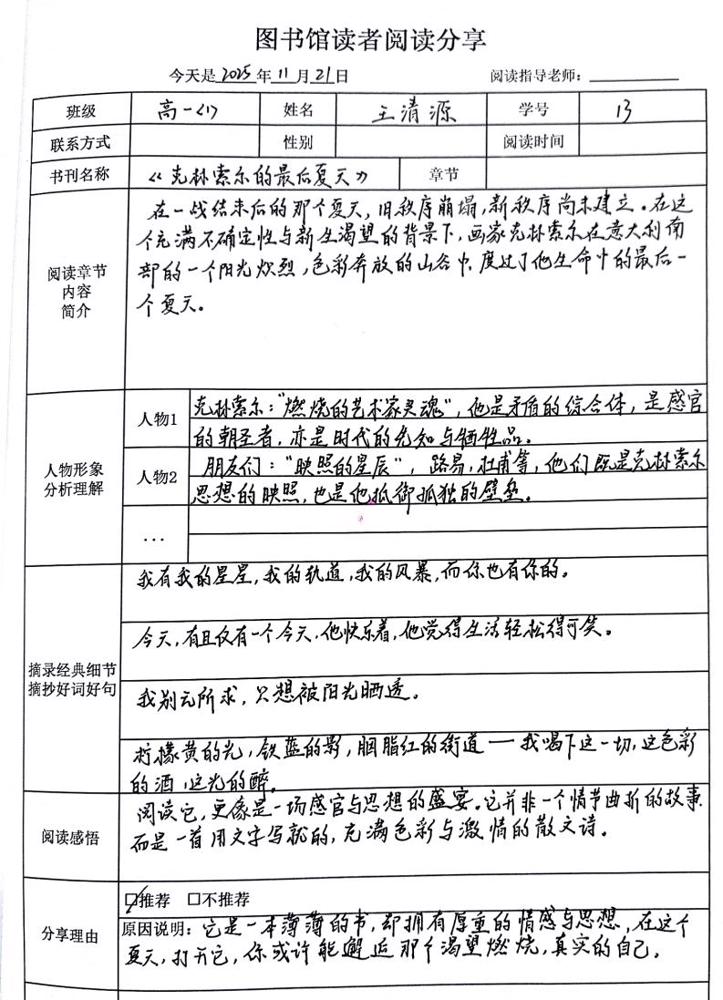 图书馆读者阅读分享
今天是 2025 年 11 月 21 日 阅读指导老师：
班级 高一<1> 姓名 王清源 学号 13
联系方式 性别 阅读时间
书刊名称 《克林索尔的最后夏天》 章节
阅读章节
内容
简介
在一战结束后的那个夏天，旧秩序崩塌，新秩序尚未建立。在这
个充满不确定性与新生渴望的背景下，画家克林索尔在意大利南
部的一个阳光炽烈，色彩奔放的山谷中，度过了他生命中的最后一
个夏天。
人物形象
分析理解
人物1
克林索尔：“燃烧的艺术家灵魂”，他是矛盾的综合体，是感官
的朝圣者，亦是时代的先知与牺牲品。
人物2
朋友们：“映照的星辰”，路易，杜甫等，他们既是克林索尔
思想的映照，也是他抵御孤独的壁垒。
...
摘录经典细节
摘抄好词好句
我有我的星星，我的轨道，我的风暴，而你也有你的。
今天，有且仅有一个今天，他快乐着，他觉得生活轻松得可笑。
我别无所求，只想被阳光晒透。
柠檬黄的光，铁蓝的影，胭脂红的街道——我喝下这一切，这色彩
的酒，这光的醉。
阅读感悟
阅读它，更像是一场感官与思想的盛宴。它并非一个情节曲折的故事
而是一首用文字写就的，充满色彩与激情的散文诗。
分享理由
☑推荐 □不推荐
原因说明：它是一本薄薄的书，却拥有厚重的情感与思想，在这个
夏天，打开它，你或许能邂逅那个渴望燃烧，真实的自己。